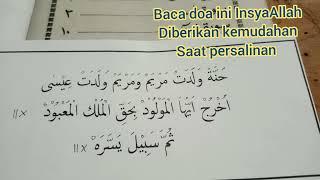 Baca doa ini InsyaAllah
Diberikan kemudahan
Saat persalinan
٣
١٠
حَنَّةُ وَلَدَتْ مَرْيَمَ وَمَرْيَمُ وَلَدَتْ عِيسَى
اُخْرُجْ اَيُّهَا الْمَوْلُوْدُ بِحَقِّ الْمَلِكِ الْمَعْبُوْدْ ١١×
ثُمَّ السَّبِيْلَ يَسَّرَهْ ١١×